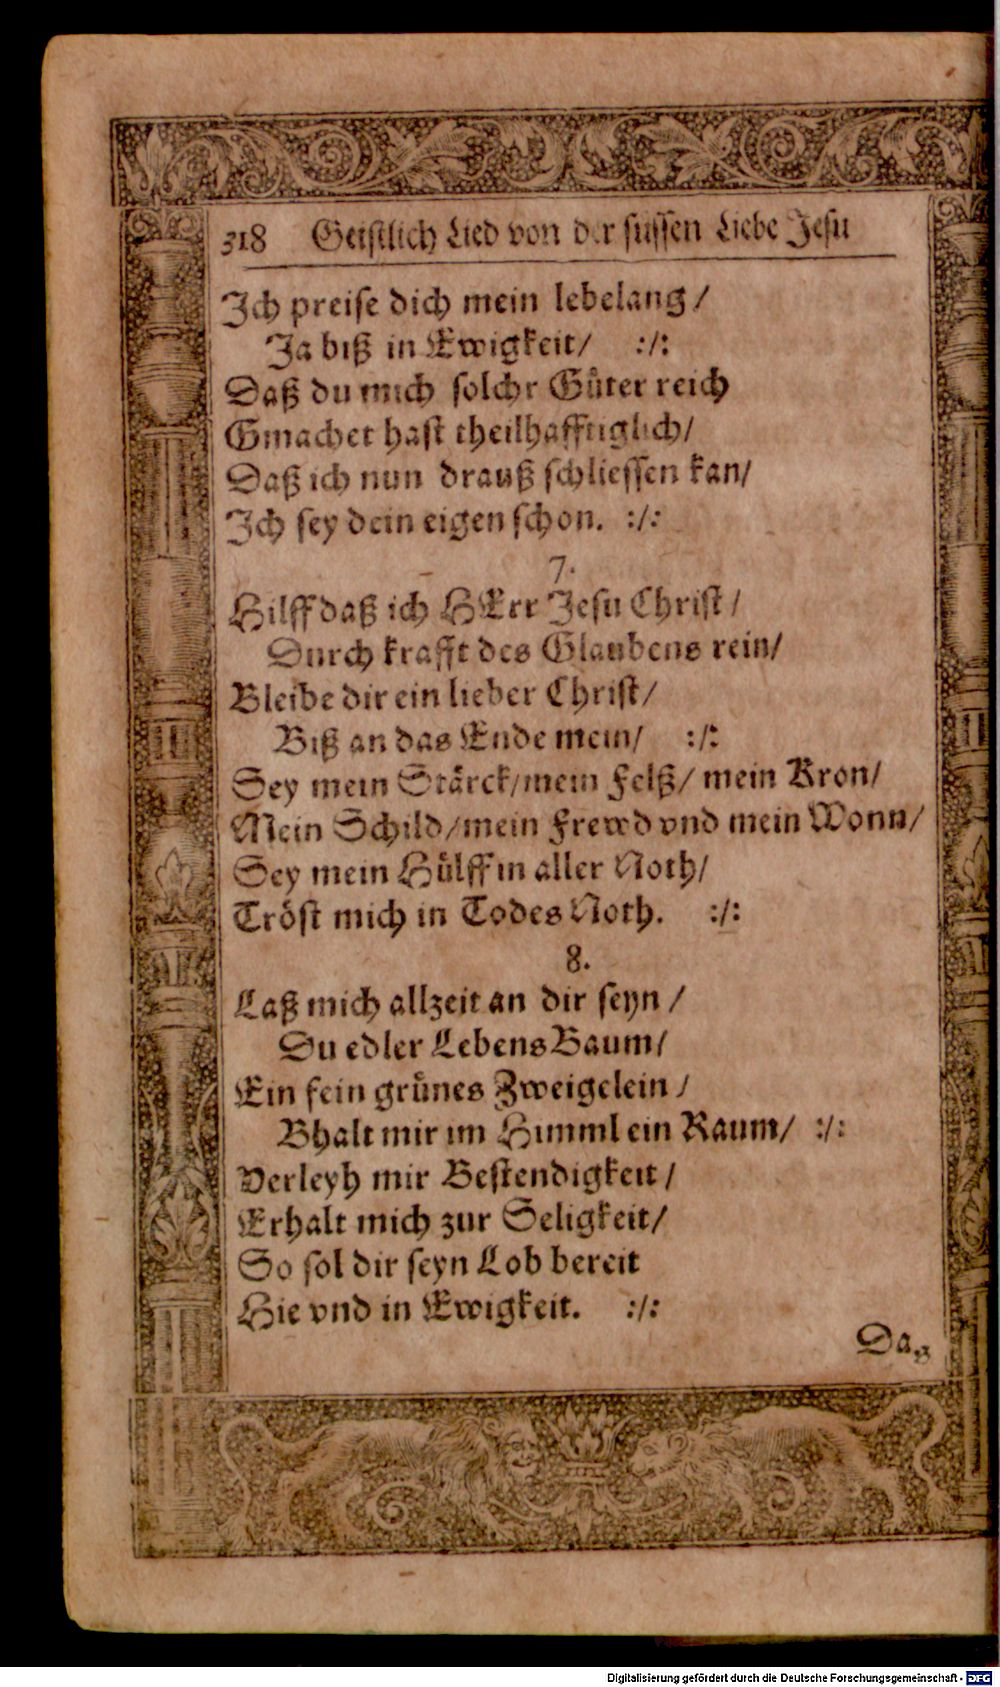 318 Geistlich Lied von der süssen Liebe Jesu
Ich preise dich mein lebelang /
Ja biß in Ewigkeit / :/:
Daß du mich solchr Güter reich
Gmachet hast theilhafftiglich /
Daß ich nun drauß schliessen kan /
Ich sey dein eigen schon. :/:
7.
Hilff daß ich HErr Jesu Christ /
Durch krafft des Glaubens rein /
Bleibe dir ein lieber Christ /
Biß an das Ende mein / :/:
Sey mein Stärck / mein Felß / mein Kron /
Mein Schild / mein Frewd vnd mein Wonn /
Sey mein Hülff in aller Noth /
Tröst mich in Todes Noth. :/:
8.
Laß mich allzeit an dir seyn /
Du edler Lebens Baum /
Ein fein grünes Zweigelein /
Bhalt mir im Himml ein Raum / :/:
Verleyh mir Bestendigkeit /
Erhalt mich zur Seligkeit /
So sol dir seyn Lob bereit
Hie vnd in Ewigkeit. :/:
Da,
Digitalisierung gefördert durch die Deutsche Forschungsgemeinschaft - DFG